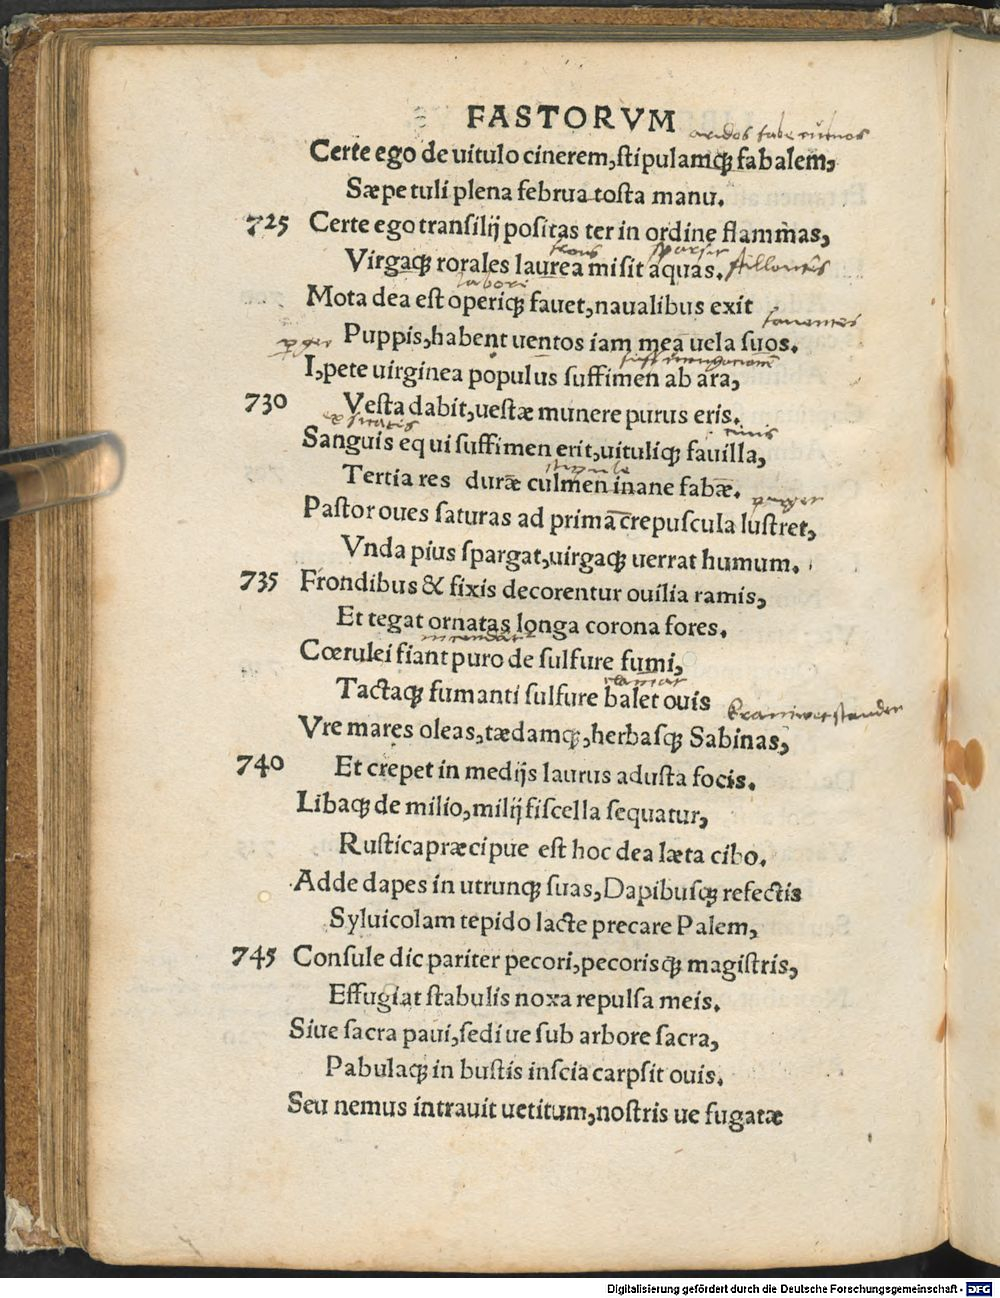 FASTORVM
aridos fabe culmos
Certe ego de uitulo cinerem, stipulamq; fabalem,
Sæpe tuli plena februa tosta manu.
725 Certe ego transilij positas ter in ordine flammas,
sparsit
Virgaq; rorales laurea misit aquas. stillantes
labori
Mota dea est operiq; fauet, naualibus exit
fauentes
Puppis, habent uentos iam mea uela suos.
I, pete uirginea populus suffimen ab ara,
730 Vesta dabit, uestæ munere purus eris.
Sanguis equi suffimen erit, uituliq; fauilla,
stipula
Tertia res duræ culmen inane fabæ.
purget
Pastor oues saturas ad prima crepuscula lustret,
Vnda pius spargat, uirgaq; uerrat humum.
735 Frondibus & fixis decorentur ouilia ramis,
Et tegat ornatas longa corona fores.
Cœrulei fiant puro de sulfure fumi,
clamat
Tactaq; fumanti sulfure balet ouis
Vre mares oleas, tædamq;, herbasq; Sabinas,
740 Et crepet in medijs laurus adusta focis.
Libaq; de milio, milij fiscella sequatur,
Rustica præcipue est hoc dea læta cibo.
Adde dapes in utrunq; suas, Dapibusq; refectis
Syluicolam tepido lacte precare Palem,
745 Consule dic pariter pecori, pecorisq; magistris,
Effugiat stabulis noxa repulsa meis.
Siue sacra paui, sedi ue sub arbore sacra,
Pabulaq; in bustis inscia carpsit ouis.
Seu nemus intrauit uetitum, nostris ue fugatæ
Digitalisierung gefördert durch die Deutsche Forschungsgemeinschaft - DFG